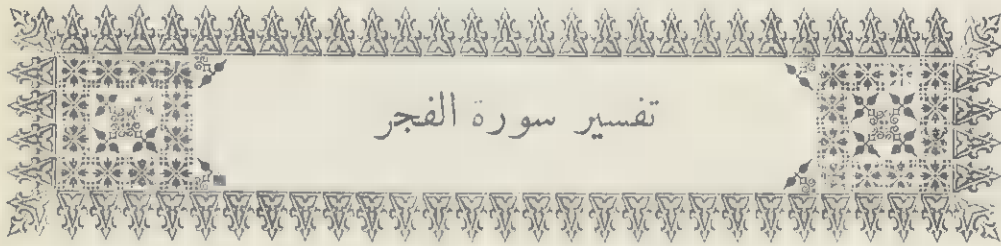 تفسير سورة الفجر